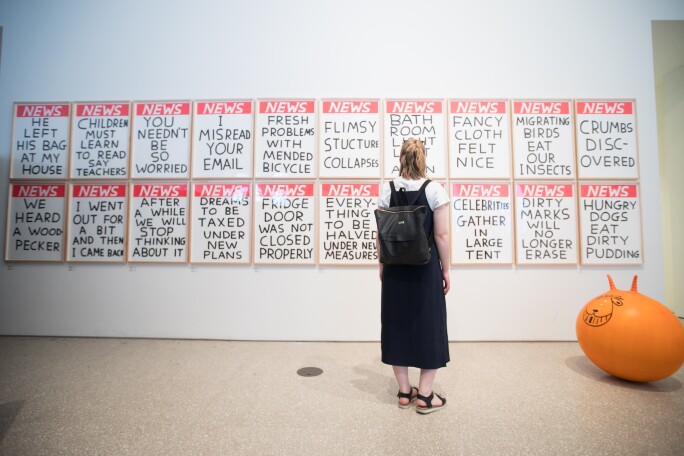 NEWS
HE
LEFT
HIS BAG
AT MY
HOUSE
NEWS
CHILDREN
MUST
LEARN
TO READ
SAY
TEACHERS
NEWS
YOU
NEEDN'T
BE
SO
WORRIED
NEWS
I
MISREAD
YOUR
EMAIL
NEWS
FRESH
PROBLEMS
WITH
MENDED
BICYCLE
NEWS
FLIMSY
STUCTURE
COLLAPSES
NEWS
BATH
ROOM
NEWS
FANCY
CLOTH
FELT
NICE
NEWS
MIGRATING
BIRDS
EAT
OUR
INSECTS
NEWS
CRUMBS
DISC-
OVERED
NEWS
WE
HEARD
A WOOD-
PECKER
NEWS
I WENT
OUT FOR
A BIT
AND THEN
I CAME BACK
NEWS
AFTER
A WHILE
WE WILL
STOP
THINKING
ABOUT IT
NEWS
DREAMS
TO BE
TAXED
UNDER
NEW
PLANS
NEWS
FRIDGE
DOOR
WAS NOT
CLOSED
PROPERLY
NEWS
EVERY-
THING
TO BE
HALVED
UNDER NEW
MEASURES
NEWS
CELEBRITIES
GATHER
IN
LARGE
TENT
NEWS
DIRTY
MARKS
WILL
NO
LONGER
ERASE
NEWS
HUNGRY
DOGS
EAT
DIRTY
PUDDING